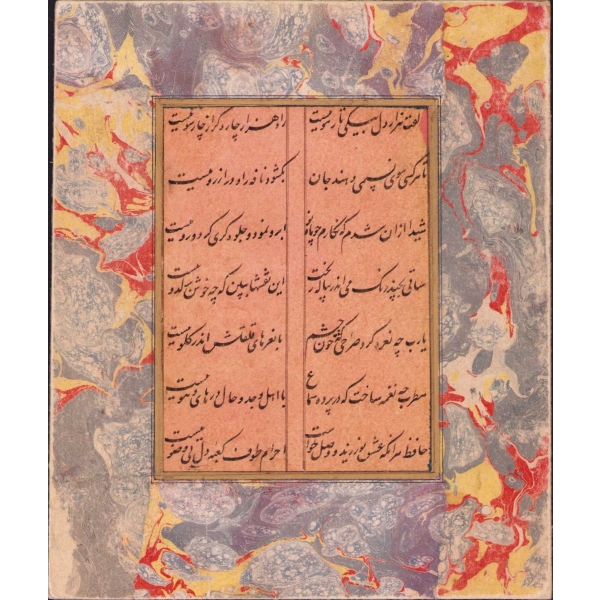 زلفت هزار دل بیکی تار مو ببست راه هزار چاره گر از چار سو ببست
تا هر کسی ببوی نسیمی دهند جان بکشود نافه را و در ارزو ببست
شیدا ازان شدم که نگارم چو ماه نو ابرو نمود و جلوه گری کرد و رو ببست
ساقی بچند رنگ می اندر پیاله ریخت این نقشها ببین که چه خوش در کدو ببست
یارب چه نعره کرد صراحی که خون خم با نعرهای قلقلش اندر گلو ببست
مطرب چه نغمه ساخت که در پرده سماع با اهل وجد و حال در های و هو ببست
حافظ هرانکه عشق نورزید و وصل خواست احرام طوف کعبه دل بی وضو ببست